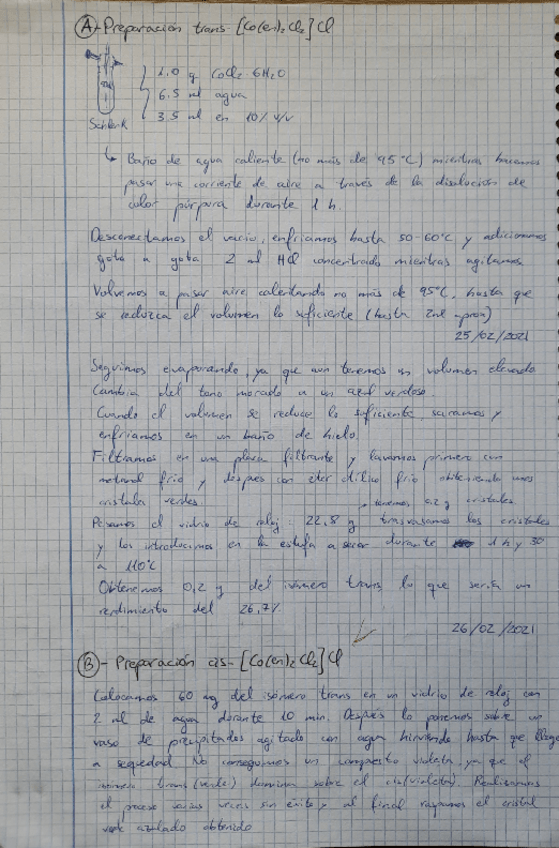 (A)- Preparación trans [Co(en)₂Cl₂]Cl
1.0 g CoCl₂·6H₂O
6.5 ml agua
3.5 ml en 10% v/v
Schlenk
↳ Baño de agua caliente (no más de 95°C) mientras hacemos
pasar una corriente de aire a través de la disolución de
color púrpura durante 1 h.
Desconectamos el vacío, enfriamos hasta 50-60°C y adicionamos
gota a gota 2 ml HCl concentrado mientras agitamos
Volvemos a pasar aire calentando no más de 95°C, hasta que
se reduzca el volumen lo suficiente (hasta 2ml aprox)
25/02/2021
Seguimos evaporando, ya que aun tenemos un volumen elevado
Cambia del tono morado a un azul verdoso.
Cuando el volumen se reduce lo suficiente, sacamos y
enfriamos en un baño de hielo.
Filtramos en una placa filtrante y lavamos primero con
metanol frío y después con éter frío obteniendo unos
cristales verdes.
→ tenemos 0,2 g cristales
Pesamos el vidrio de reloj: 22,8 g trasvasamos los cristales
y los introducimos en la estufa a secar durante 1 h y 30
a 110°C
Obtenemos 0,2 g del isómero trans, lo que sería un
rendimiento del 26,7%
26/02/2021
(B)- Preparación cis-[Co(en)₂Cl₂]Cl
Colocamos 60 mg del isómero trans en un vidrio de reloj con
2 ml de agua durante 10 min. Después lo ponemos sobre un
vaso de precipitados agitado con agua hirviendo hasta que llegue
a sequedad. No conseguimos un compuesto violeta, ya que el
isómero trans (verde) domina sobre el cis (violeta). Realizamos
el proceso varias veces sin éxito y al final rayamos el cristal
verde azulado obtenido